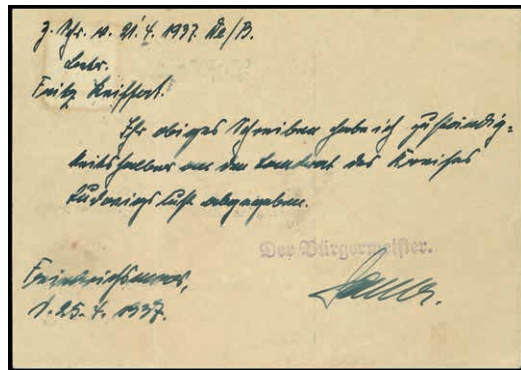 z. Schr. v. 21.4.1937. We/B.
betr.
Fritz Reiffert.
Ihr obiges Schreiben habe ich zuständig=
keitshalber an den Landrat des Kreises
Ludwigslust abgegeben.
Der Bürgermeister.
Friedrichsmoor,
d. 25.4.1937.